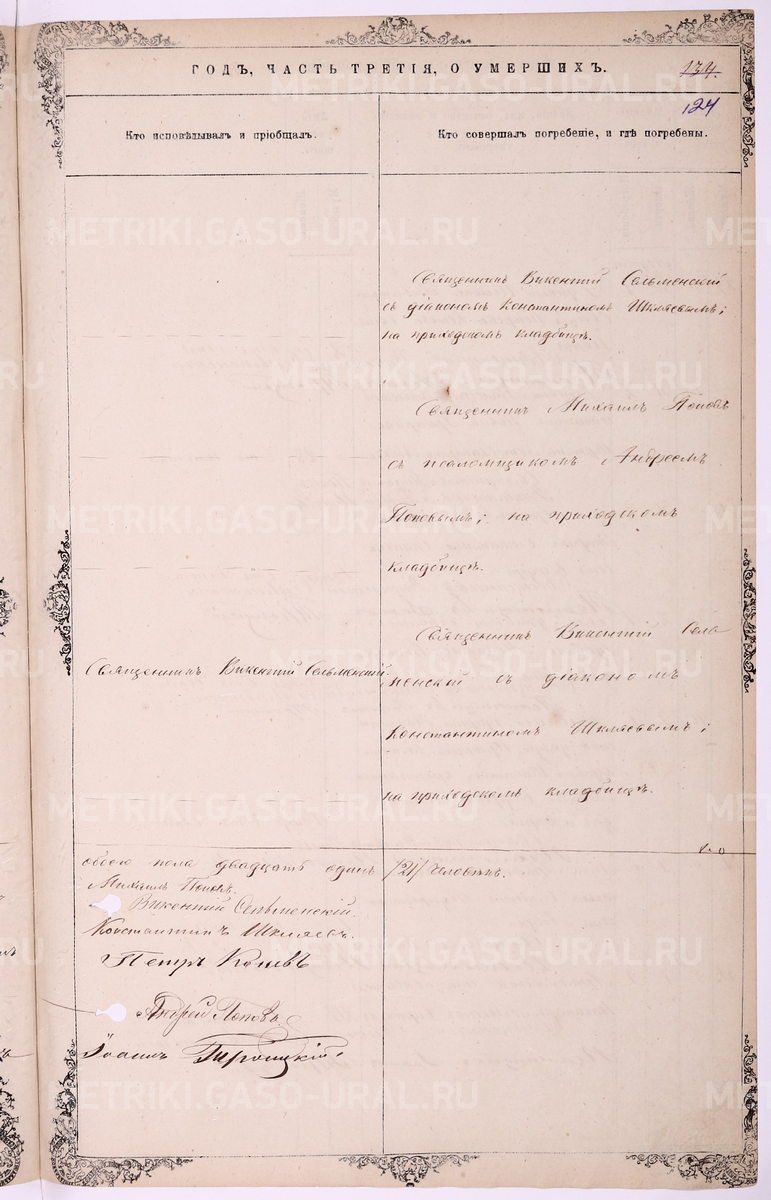 ГОДЪ, ЧАСТЬ ТРЕТІЯ, О УМЕРШИХЪ.
134.
124
Кто исповѣдывалъ и пріобщалъ.
Кто совершалъ погребеніе, и гдѣ погребены.
Священникъ Викентій Сельменскій
съ діакономъ Константиномъ Шкляевымъ;
на приходскомъ кладбищѣ.
Священникъ Михаилъ Поповъ
съ псаломщикомъ Андреемъ
Поповымъ; на приходскомъ
кладбищѣ.
Священникъ Викентій Сельменскій.
Священникъ Викентій Сель
менскій съ діакономъ
Константиномъ Шкляевымъ;
на приходскомъ кладбищѣ.
обоего пола двадцать одинъ /21/ человѣкъ.
Михаилъ Поповъ.
Викентій Сельменскій.
Константинъ Шкляевъ.
Петръ Коневъ
Андрей Поповъ
Іоаннъ
METRIKI.GASO-URAL.RU